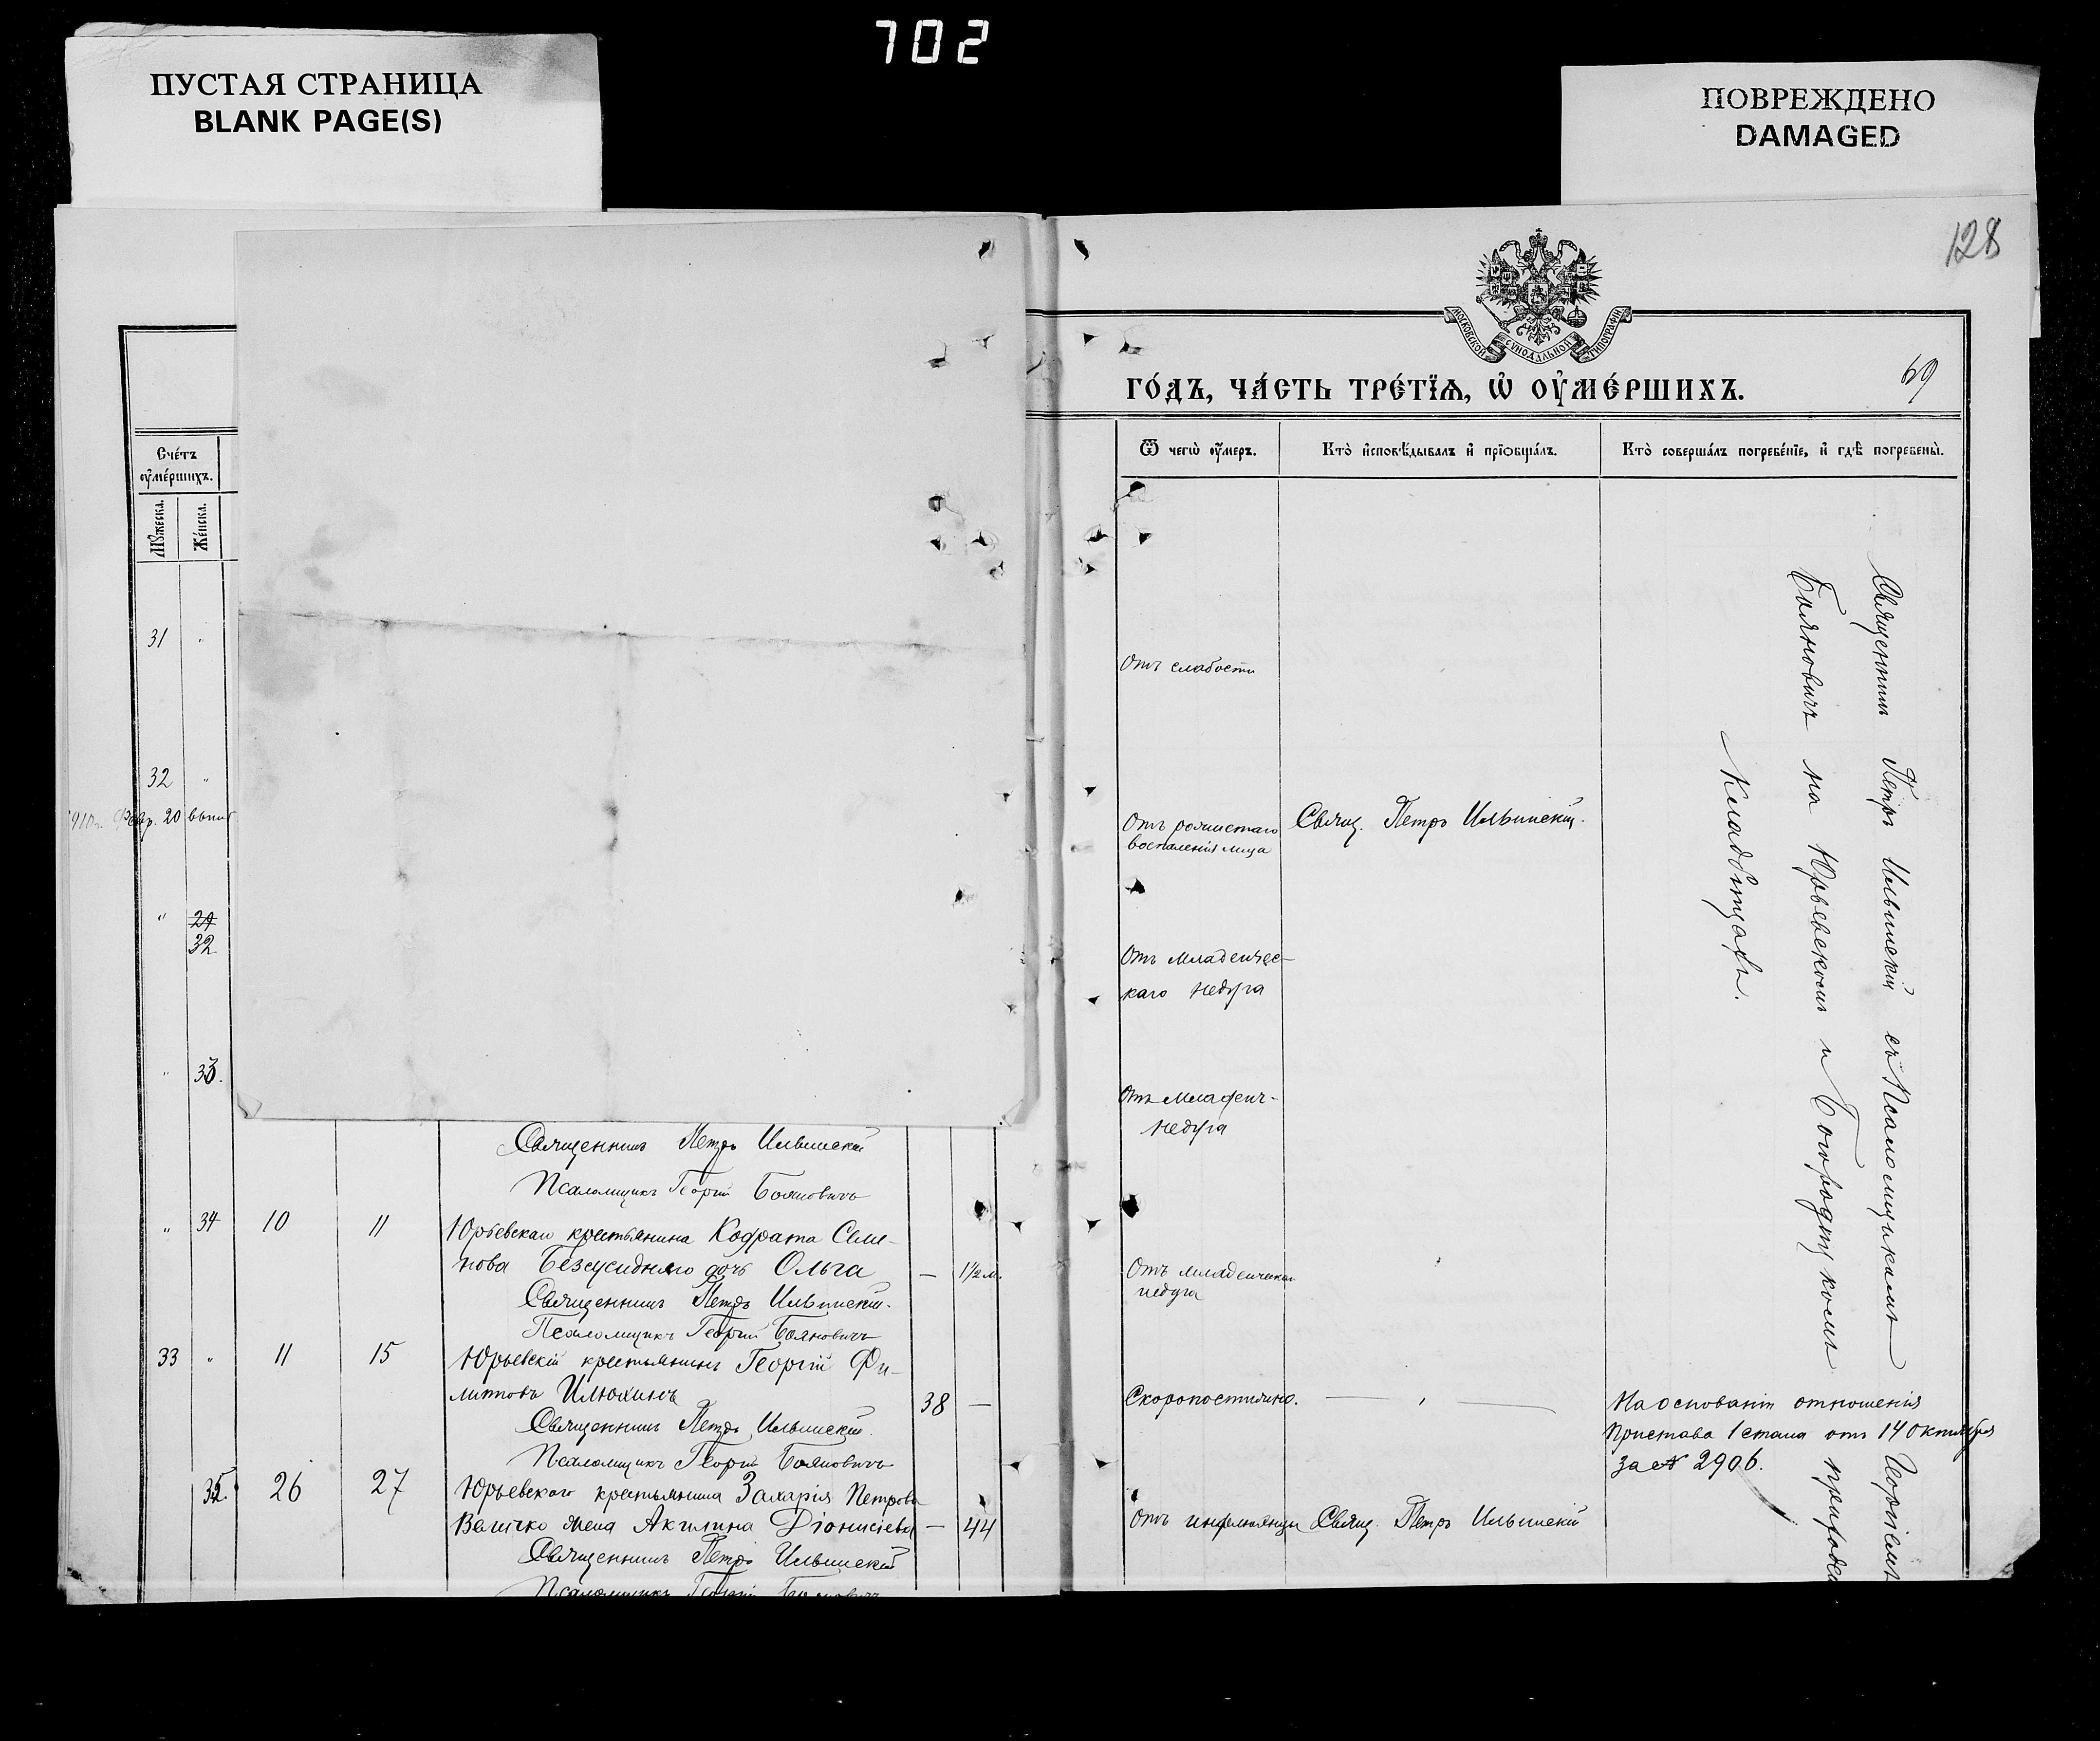 702
ПУСТАЯ СТРАНИЦА
BLANK PAGE(S)
ПОВРЕЖДЕНО
DAMAGED
128
МОСКОВСКОЙ СѴНОДАЛЬНОЙ ТИПОГРАФІИ
69
Счéтъ
ᲂу҆мéршихъ.
Мꙋжеска.
Жéнска.
31 "
32 "
1910г. Февр. 20 выпис
" 29
32
" 33.
Священникъ Петръ Ильинскій
Псаломщикъ Георгій Бояновичъ
" 34 10 11 Юрьевскаго крестьянина Кодрата Семе-
нова дочь Ольга — 1½ м.
Священникъ Петръ Ильинскій.
Псаломщикъ Георгій Бояновичъ
33 " 11 15 Юрьевскій крестьянинъ Георгій Фи-
липповъ Илюхинъ 38 —
Священникъ Петръ Ильинскій.
Псаломщикъ Георгій Бояновичъ
35. 26 27 Юрьевскаго крестьянина Захарія Петрова
Величко жена Акилина Діонисіева — 44
Священникъ Петръ Ильинскій
Псаломщикъ Георгій Бояновичъ
гóдъ, чáсть трéтїѧ, ѡ҆ ᲂу҆мéршихъ.
Ѿ чегѡ̀ ᲂу҆́меръ.
Ктò и҆сповѣ́дывалъ и҆ прїѡбщáлъ.
Ктò совершáлъ погребéнїе, и҆ гдѣ̀ погребены̀.
Отъ слабости
Отъ рожистаго
воспаленія лица
Свящ. Петръ Ильинскій.
Отъ младенчес-
каго недуга
Отъ младенч-
недуга
Отъ младенческ
недуга
Скоропостижно. — " —
На основаніи отношенія
Пристава 1 стана отъ 14 октября
за № 2906.
Отъ инфлюэнцы Свящ. Петръ Ильинскій
Священникъ Петръ Ильинскій съ Псаломщикомъ Георгіемъ
Бояновичъ на Юрьевскомъ и Богородицкомъ приходск
Кладбищахъ.